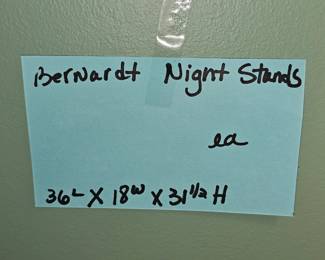 Bernardt Night Stands
ea
36L X 18W X 31 1/2 H